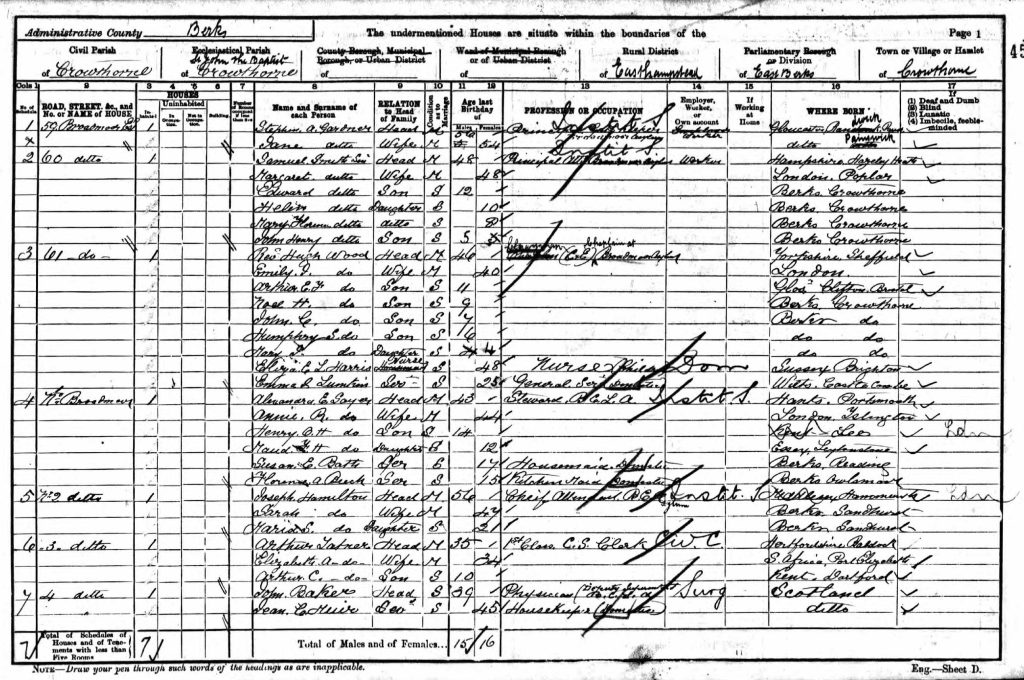 Administrative County Berks The undermentioned Houses are situate within the boundaries of the Page 1
Civil Parish Ecclesiastical Parish County Borough, Municipal Borough, or Urban District Ward of Municipal Borough or of Urban District Rural District Parliamentary Borough or Division Town or Village or Hamlet
of Crowthorne of St John the Baptist Crowthorne of of of Easthampstead of East Berks of Crowthorne
Cols 1 2 3 4 5 6 7 8 9 10 11 12 13 14 15 16 17
No. of Schedule ROAD, STREET, &c., and No. or NAME of HOUSE HOUSES Inhabited Uninhabited In Occupation Not in Occupation Building Name and Surname of each Person RELATION to Head of Family Condition as to Marriage Age last Birthday of Males Females PROFESSION OR OCCUPATION Employer, Worker, or Own account If Working at Home WHERE BORN (1) Deaf and Dumb (2) Blind (3) Lunatic (4) Imbecile, feeble-minded
1 59 Broadmoor 1 Stephen A. Gardner Head M Gloucester
Jane detto Wife M 54 detto Painswick
2 60 detto 1 Samuel Smith Head M 48 Principal Worker Hampshire Hazeley Heath
Margaret detto Wife M 48 London. Poplar
Edward detto Son S 12 Berks. Crowthorne
Helen detto Daughter S 10 Berks. Crowthorne
Mary Florence detto detto S 8 Berks Crowthorne
John Henry detto Son S 5 Berks Crowthorne
3 61 do 1 Rev Hugh Wood Head M 46 Clergyman (C of E) Chaplain at Broadmoor Asylum Yorkshire Sheffield
Emily do Wife M 40 London
Arthur E. do Son S 11 Glos Clifton Bristol
Noel H. do Son S 9 Berks. Crowthorne
John C. do Son S 7 Berks do
Humphry S. do Son S 6 do do
Mary do Daughter S 4 do do
Eliza C. L. Harris Nurse S 48 Nurse Dom Sussex Brighton
Emma Ser S 25 General Serv Domestic Wilts. Castle Combe
4 No 1 Broadmoor 1 Alexandra E. Sayer Head M 43 Steward B. C. L. A Instit. S. Hants. Portsmouth
Annie. R. do Wife M 44 London Islington
Henry. O. H do Son S 14 Kent Lee Ldn
Maud. H do Daughter S 12 Essex, Leytonstone
Susan. C. Batts Ser S 17 Housemaid. Domestic Berks, Reading
Florence A Beech Ser S 15 Kitchen Maid Domestic Berks Owlsmoor
5 No 2 detto 1 Joseph Hamilton Head M 56 Cheif Attendant B. C. L. Asylum Instit. S Middlesex, Hammersmith Ldn
Sarah do Wife M 47 Berks Sandhurst
Maria S. do Daughter S 21 Berks Sandhurst
6 3. detto 1 Arthur Head M 35 1st Class C. S. Clerk Hertfordshire Baldock
Elizabeth A do Wife M 34 S. Africa, Port Elizabeth
Arthur C. do Son S 10 Kent, Dartford
7 4 detto 1 John Baker Head S 39 Physician Surg Scotland
Jean C. Ser S 45 Housekeeper (Domestic) detto
7 Total of Schedules of Houses and of Tenements with less than Five Rooms 7 Total of Males and of Females... 15 16
NOTE—Draw your pen through such words of the headings as are inapplicable. Eng.—Sheet D.